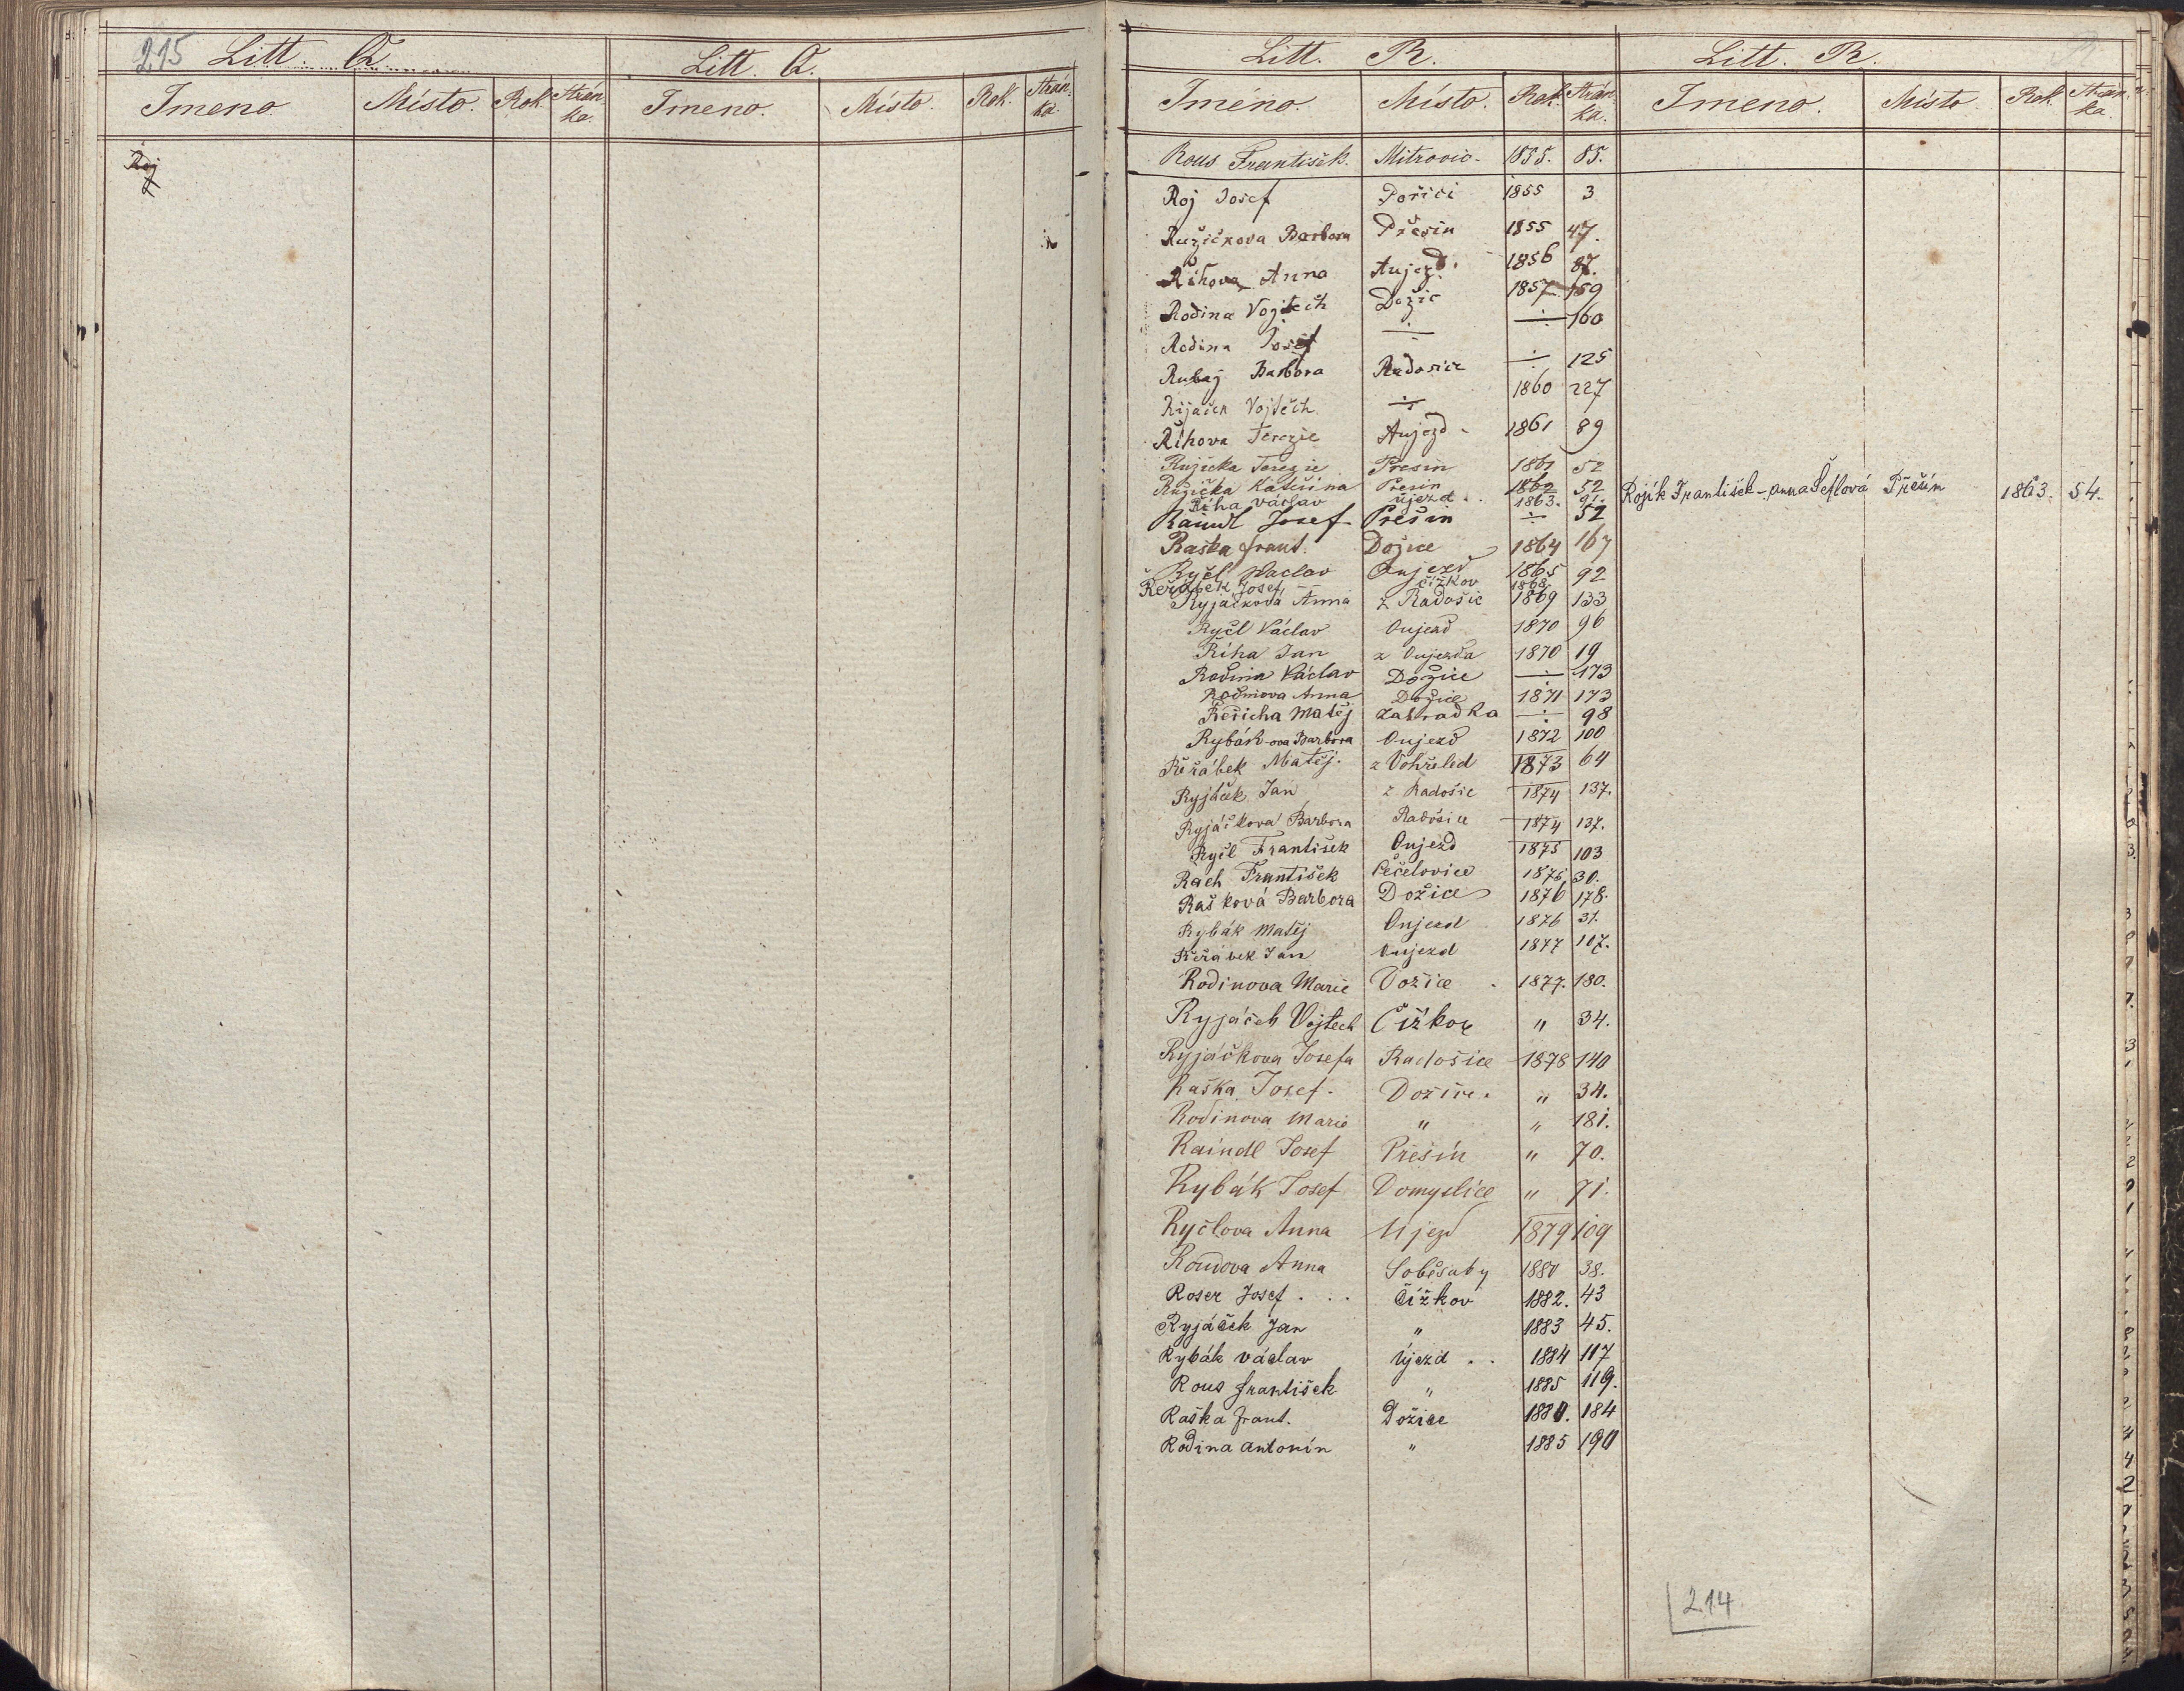 215 Litt. Q
Litt. Q.
Jmeno Místo. Rok. Strán-
ka.
Jmeno. Místo. Rok. Strán-
ka.
Roj
Litt. R.
Litt. R.
Jméno. Místo. Rok. Strán-
ka.
Jmeno. Místo. Rok. Strán-
ka.
Rous František. Mitrovic. 1855. 85.
Roj Josef Poříčí 1855 3
Ružičkova Barbora Přešin 1855 47.
Řihova Anna Aujezd. 1856 87.
Rodina Vojtěch Dožic 1857 159
Rodina Josef ÷ ÷ 160
Rubaj Barbora Radosice ÷ 125
Rijaček Vojtěch ÷ 1860 227
Řihova Terezie Aujezd 1861 89
Ružicka Terezie Presin 1861 52
Ružička Kateřina Presin 1862 52
Řiha Václav újezd . . 1863. 91.
Raindl Josef Přešin ÷ 52
Raška frant. Dožice 1864 167
Ryčl Waclav Aujezd 1865 92
Řeřábek Josef čížkov 1868
Ryjáčková Anna z Radošic 1869 133
Ryčl Václav Oujezd 1870 96
Říha Jan z Oujezda 1870 19
Rodina Václav Dožice ÷ 173
Rodinova Anna Dožice 1871 173
Řeřicha Matěj Zahradka ÷ 98
Rybák-ova Barbora Oujezd 1872 100
Řeřábek Matěj. z Vohřeled 1873 64
Ryjáček Jan z Radošic 1874 137.
Ryjáčkova Barbora Radošice 1874 137.
Ryčl František Oujezd 1875 103
Rach František Čečelovice 1875 30.
Rašková Barbora Dožice 1876 178.
Rybák Matěj Oujezd 1876 31.
Řeřábek Jan Oujezd 1877 107.
Rodinova Marie Dožice . 1877. 180.
Ryjáček Vojtech Čížkov " 34.
Ryjáčkova Josefa Radošice 1878 140
Raška Josef. Dožice. " 34.
Rodinova Marie " " 181.
Raindl Josef Přešín " 70.
Rybák Josef Domyslice " 71.
Ryčlova Anna Ujezd 1879 109
Roudova Anna Soběsuky 1880 38.
Roser Josef . . . Čížkov 1882. 43
Ryjáček Jan " 1883 45.
Rybák václav Újezd . . 1884 117
Rous František " 1885 119.
Raška frant. Dožice 1880. 184
Rodina antonín " 1885 190
Rojík František - anna Šeflová Přešín 1863. 54.
214